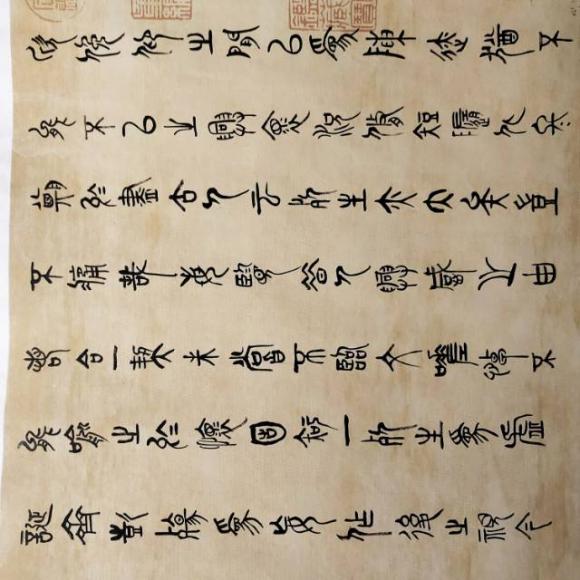 欣俛仰之間以為陳迹猶不
能不以之興懷況脩短隨化終
期於盡古人云死生亦大矣豈
不痛哉每攬昔人興感之由
若合一契未嘗不臨文嗟悼不
能喻之於懷固知一死生為虛
誕齊彭殤為妄作後之視今